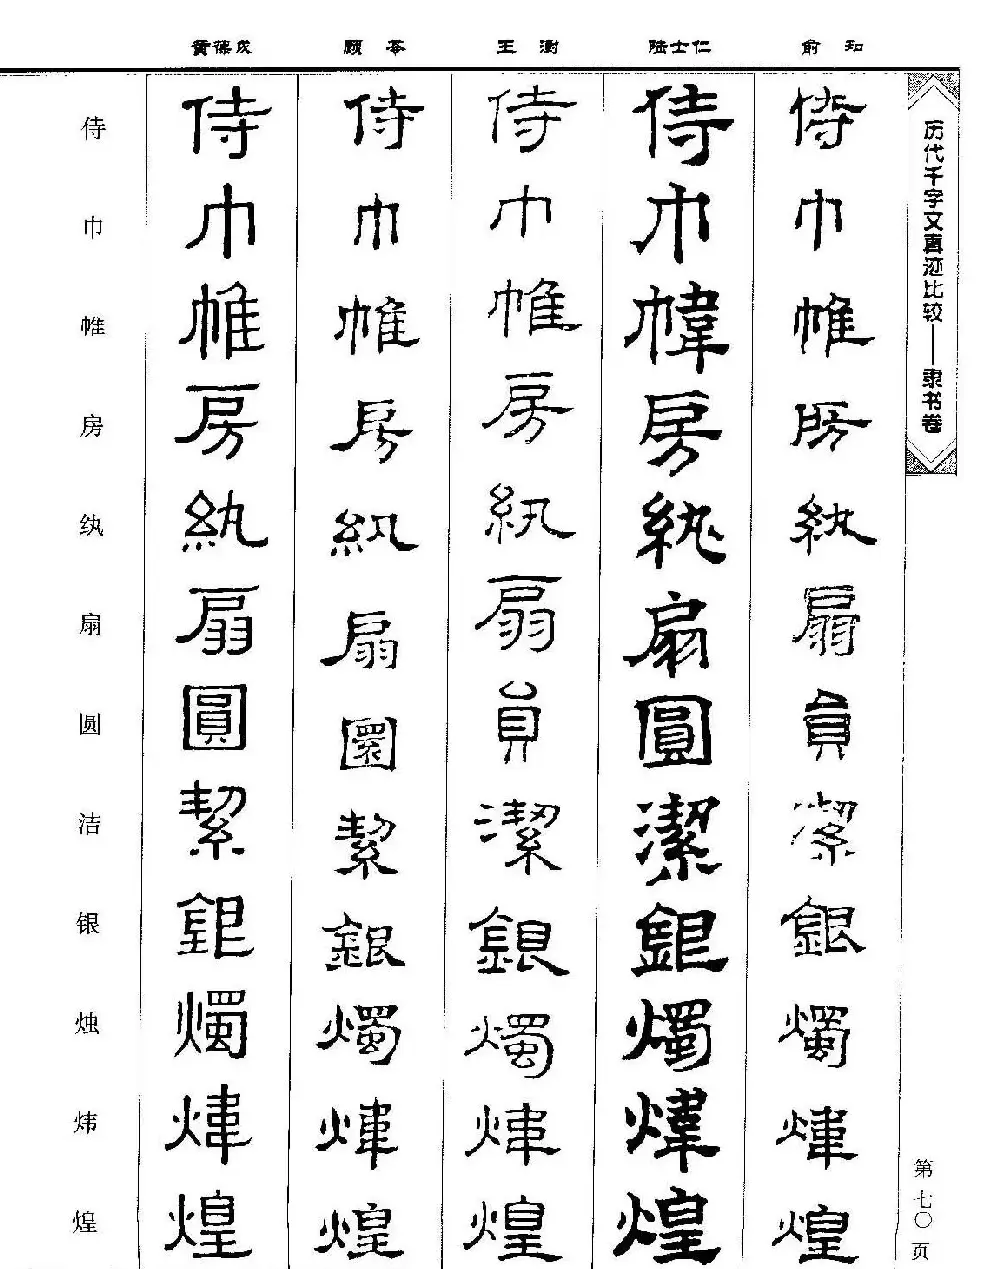 历代千字文真迹比较——隶书卷
第七〇页
俞和
侍巾帷房紈扇員潔銀燭煒煌
陆士仁
侍巾幃房紈扇圓潔銀燭煒煌
王澍
侍巾帷房紈扇員潔銀燭煒煌
顾苓
侍巾帷房紈扇圜絜銀燭煒煌
黄葆戉
侍巾帷房紈扇圓絜銀燭煒煌
侍巾帷房纨扇圆洁银烛炜煌